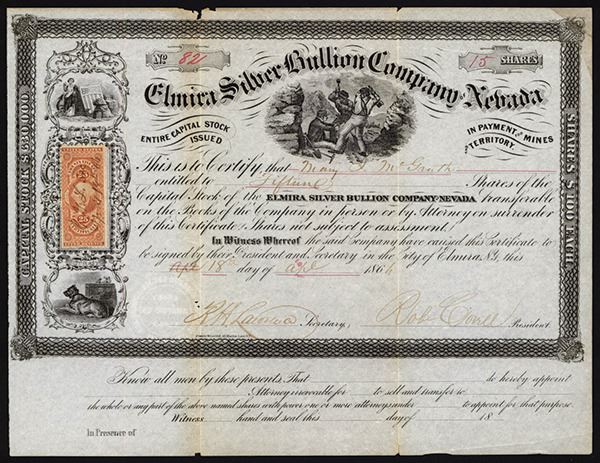 No. 821
15 SHARES
Elmira Silver Bullion Company-Nevada
ENTIRE CAPITAL STOCK
ISSUED
IN PAYMENT FOR THE MINES
AND TERRITORY.
This is to Certify, that Mary
entitled to Fifteen Shares of the
Capital Stock of the ELMIRA SILVER BULLION COMPANY-NEVADA, transferable
on the Books of the Company in person or by Attorney on surrender
of this Certificate. Shares not subject to assessment.
In Witness Whereof the said Company have caused this Certificate to
be signed by their President and Secretary in the City of Elmira N.Y. this
18th day of 186
Secretary,
President
CAPITAL STOCK $
SHARES $100 EACH.
25
25
Know all men by these presents, That do hereby appoint
Attorney irrevocable for to sell and transfer to
the whole or any part of the above named shares with power one or more attorneys under to appoint for that purpose.
Witness hand and seal this day of 18
In Presence of